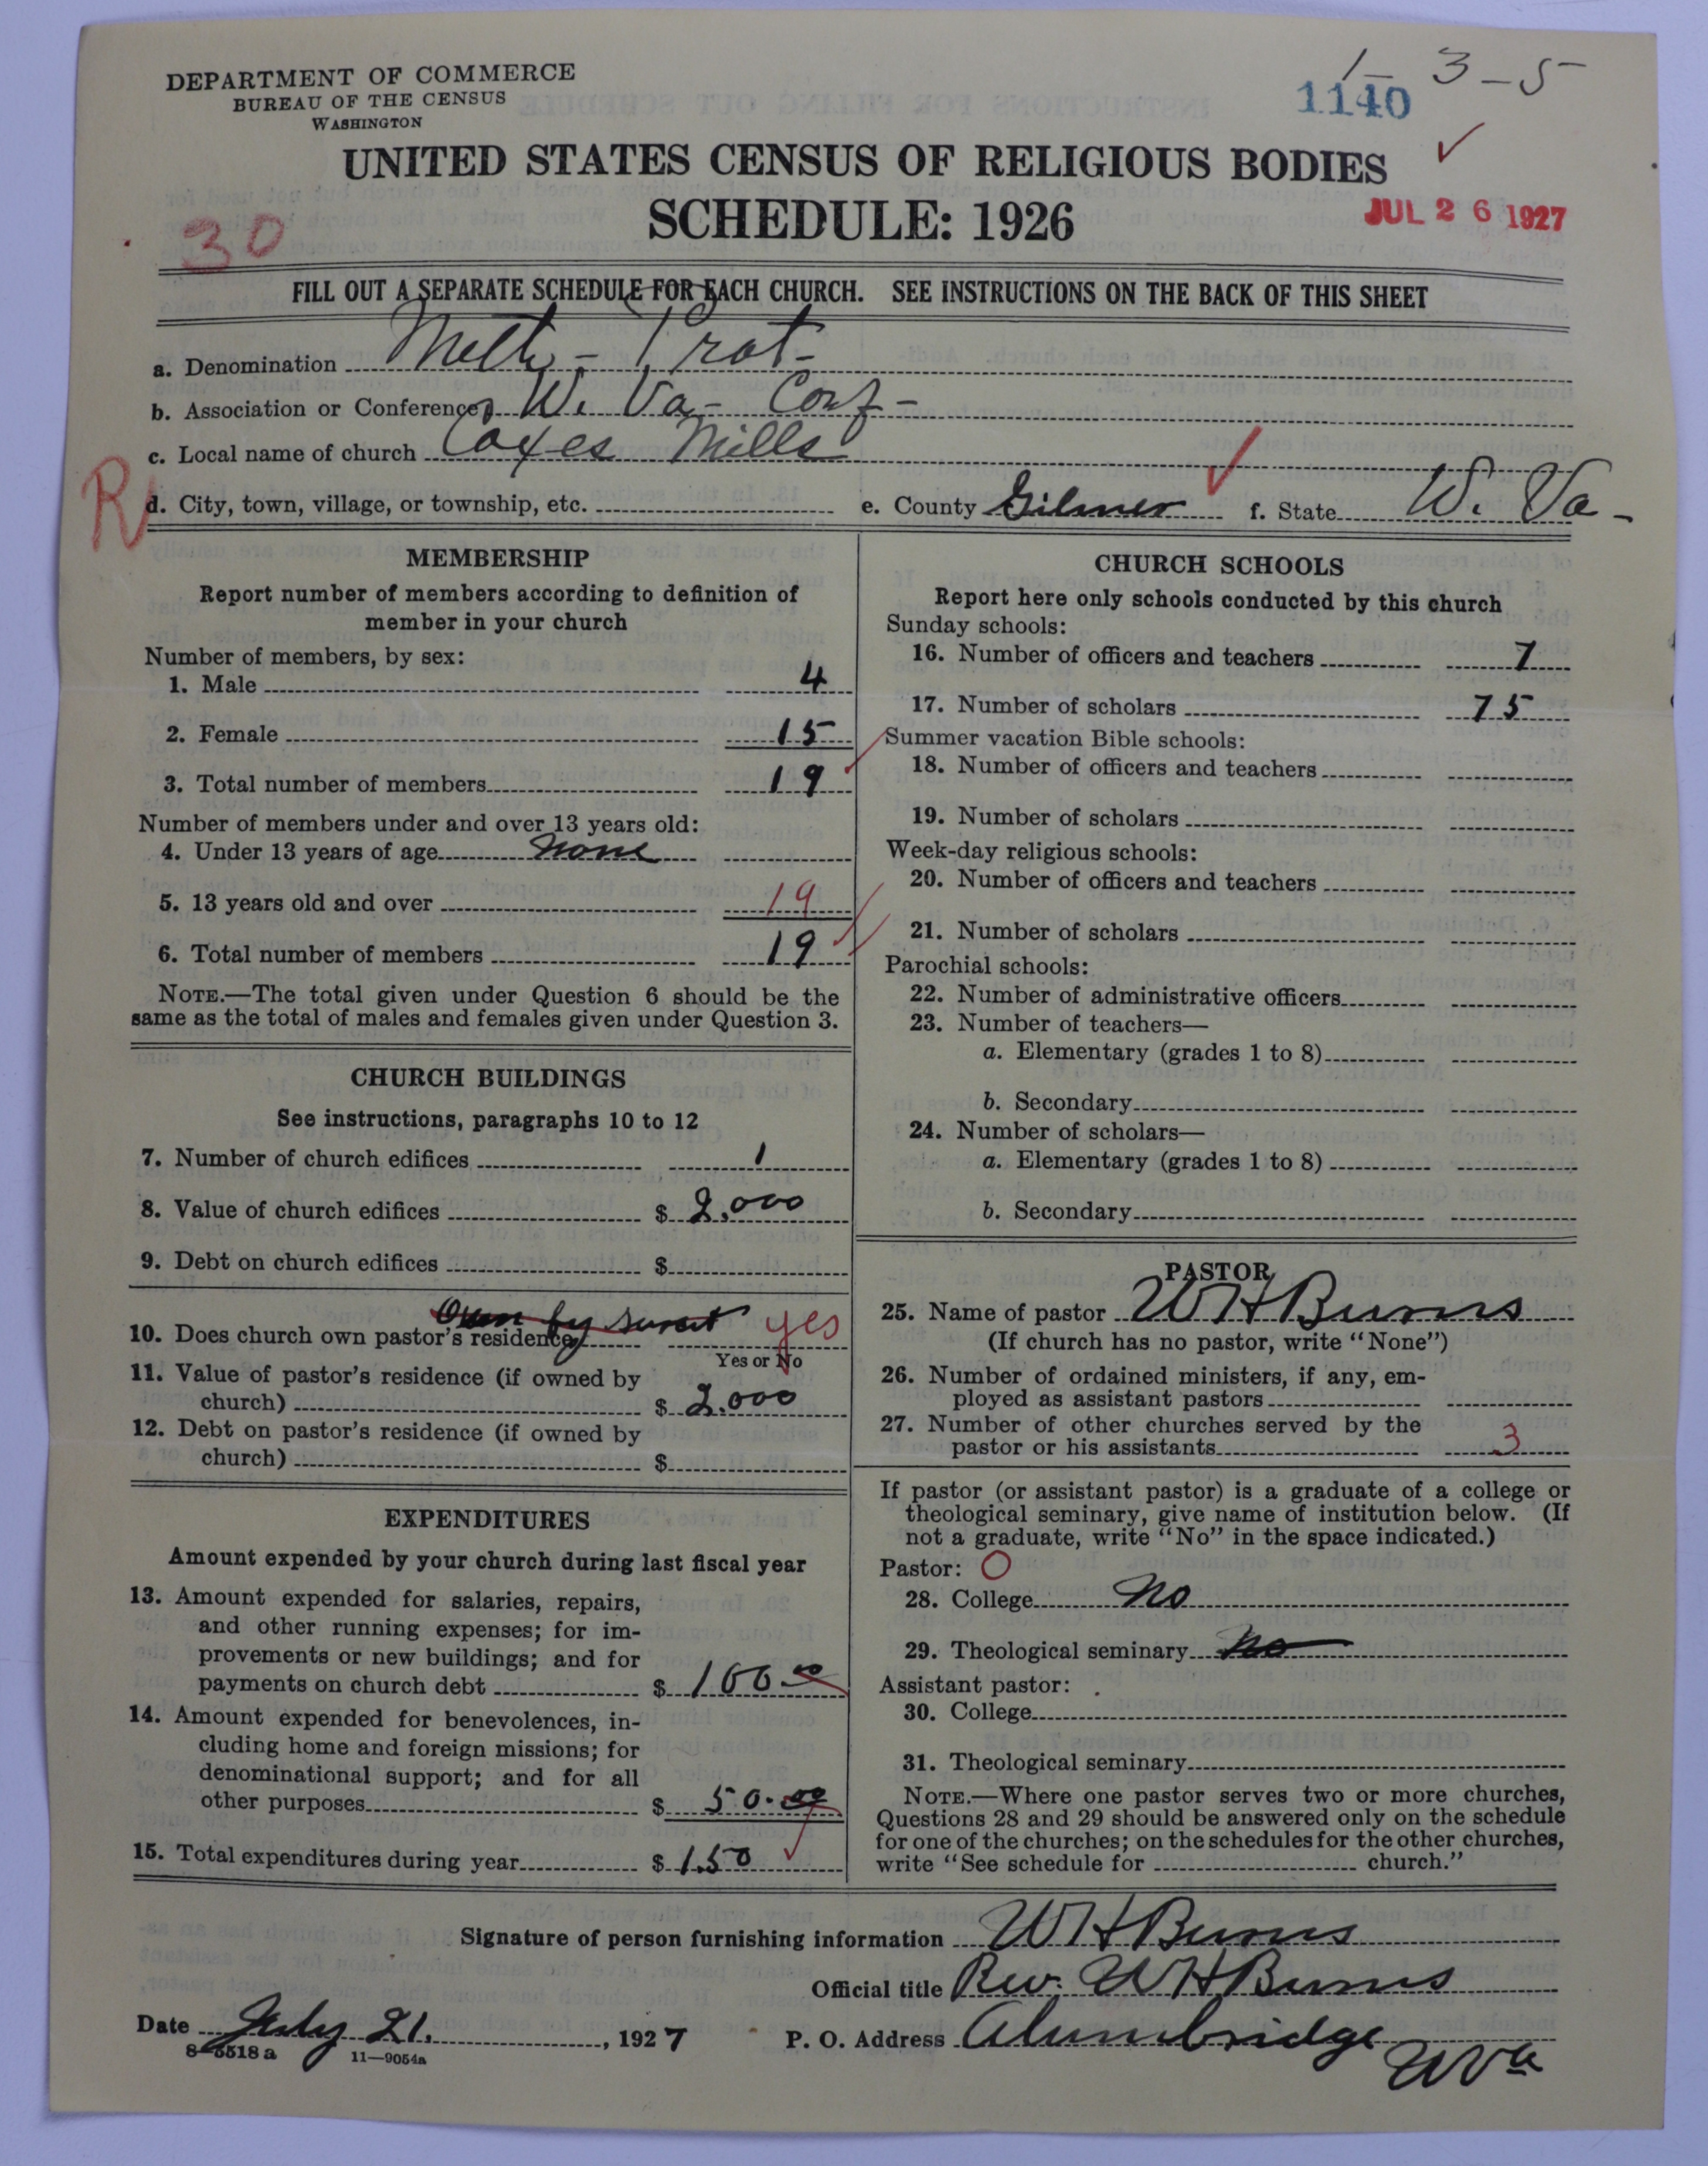 DEPARTMENT OF COMMERCE
BUREAU OF THE CENSUS
WASHINGTON
1 - 3 - 5
1140
UNITED STATES CENSUS OF RELIGIOUS BODIES
SCHEDULE: 1926
JUL 26 1927
30
FILL OUT A SEPARATE SCHEDULE FOR EACH CHURCH. SEE INSTRUCTIONS ON THE BACK OF THIS SHEET
a. Denomination Meth - Prot -
b. Association or Conference W. Va - Conf -
c. Local name of church Coxes Mills
R
d. City, town, village, or township, etc. e. County Gilmer f. State W. Va -
MEMBERSHIP
Report number of members according to definition of
member in your church
Number of members, by sex:
1. Male 4
2. Female 15
3. Total number of members 19
Number of members under and over 13 years old:
4. Under 13 years of age None
5. 13 years old and over 19
6. Total number of members 19
NOTE.—The total given under Question 6 should be the
same as the total of males and females given under Question 3.
CHURCH BUILDINGS
See instructions, paragraphs 10 to 12
7. Number of church edifices 1
8. Value of church edifices $ 2,000
9. Debt on church edifices $
Own by
10. Does church own pastor's residence yes
Yes or No
11. Value of pastor's residence (if owned by
church) $ 2.000
12. Debt on pastor's residence (if owned by
church) $
EXPENDITURES
Amount expended by your church during last fiscal year
13. Amount expended for salaries, repairs,
and other running expenses; for im-
provements or new buildings; and for
payments on church debt $ 100 00
14. Amount expended for benevolences, in-
cluding home and foreign missions; for
denominational support; and for all
other purposes $ 50.00
15. Total expenditures during year $ 1.50
CHURCH SCHOOLS
Report here only schools conducted by this church
Sunday schools:
16. Number of officers and teachers 7
17. Number of scholars 75
Summer vacation Bible schools:
18. Number of officers and teachers
19. Number of scholars
Week-day religious schools:
20. Number of officers and teachers
21. Number of scholars
Parochial schools:
22. Number of administrative officers
23. Number of teachers—
a. Elementary (grades 1 to 8)
b. Secondary
24. Number of scholars—
a. Elementary (grades 1 to 8)
b. Secondary
PASTOR
25. Name of pastor W H Burns
(If church has no pastor, write "None")
26. Number of ordained ministers, if any, em-
ployed as assistant pastors
27. Number of other churches served by the
pastor or his assistants 3
If pastor (or assistant pastor) is a graduate of a college or
theological seminary, give name of institution below. (If
not a graduate, write "No" in the space indicated.)
Pastor: O
28. College no
29. Theological seminary no
Assistant pastor:
30. College
31. Theological seminary
NOTE.—Where one pastor serves two or more churches,
Questions 28 and 29 should be answered only on the schedule
for one of the churches; on the schedules for the other churches,
write "See schedule for church."
Signature of person furnishing information W H Burns
Official title Rev. W H Burns
Date July 21, 1927 P. O. Address Alumbridge
W Va
8-5518a 11—9054a